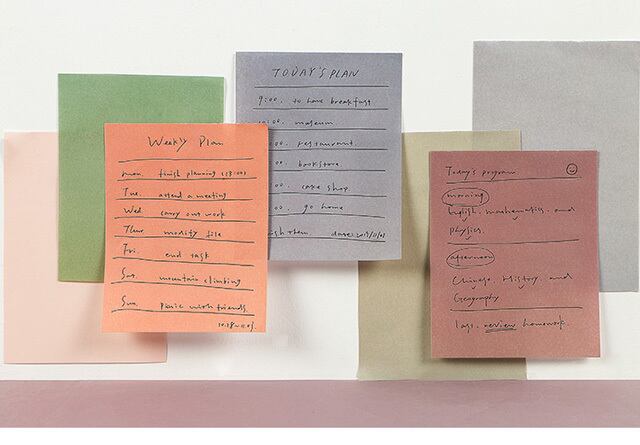 Weekly Plan
mon. finish planning (18:00)
Tue. attend a meeting
Wed. carry out work
Thur modify file
Fri. end task
Sat. mountain climbing
Sun. Picnic with friends.
TODAY'S PLAN
9:00. to have breakfast
museum
00. restaurant
00. bookstore
00. cake shop
00. go home
them. date:
Today's program
morning
English. mathematics. and
Physics.
afternoon
Chinese. History. and
Geography
last. review homework.